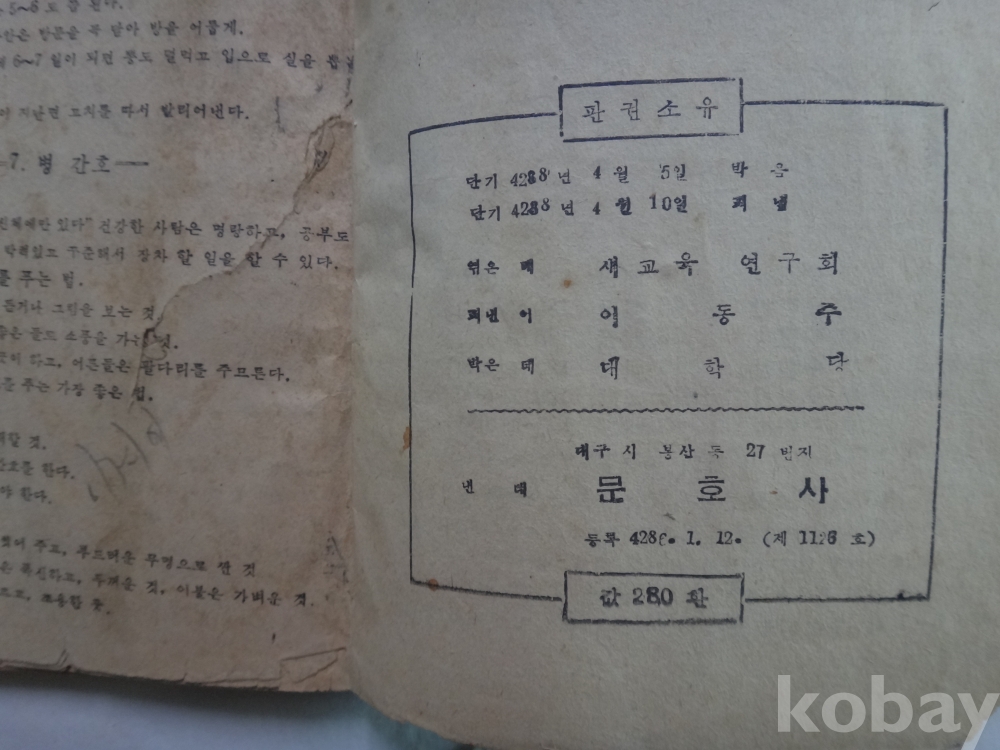 5~6 도 쯤 된다.
방문을 꼭 닫아 방을 어둡게.
6~7 일이 되면 뽕도 덜먹고 입으로 실을 뽑
지난면 고치를 따서 말리어낸다.
7. 병 간호
있다" 건강한 사람은 명랑하고, 공부도
장차 할 일을 할 수 있다.
를 주는 법.
듣거나 그림을 보는 것
좋은 들로 소풍을 가는 것.
하고, 어른들은 팔다리를 주므른다.
를 주는 가장 좋은 법.
할 것.
간호를 한다.
야 한다.
씻어 주고, 부드러운 무명으로 싼 것
푹신하고, 두꺼운 것, 이불은 가벼운 것.
조용할 것.
판권소유
단기 4288년 4월 5일 박음
단기 4288년 4월 10일 펴냄
엮은 데 새교육 연구회
펴낸 이 이동주
박은 데 대학당
대구시 봉산동 27 번지
낸 데 문호사
등록 428 . 1. 12. (제 1126 호)
값 280 환
kobay